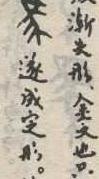 漸失形、金文也只
遂成定形。